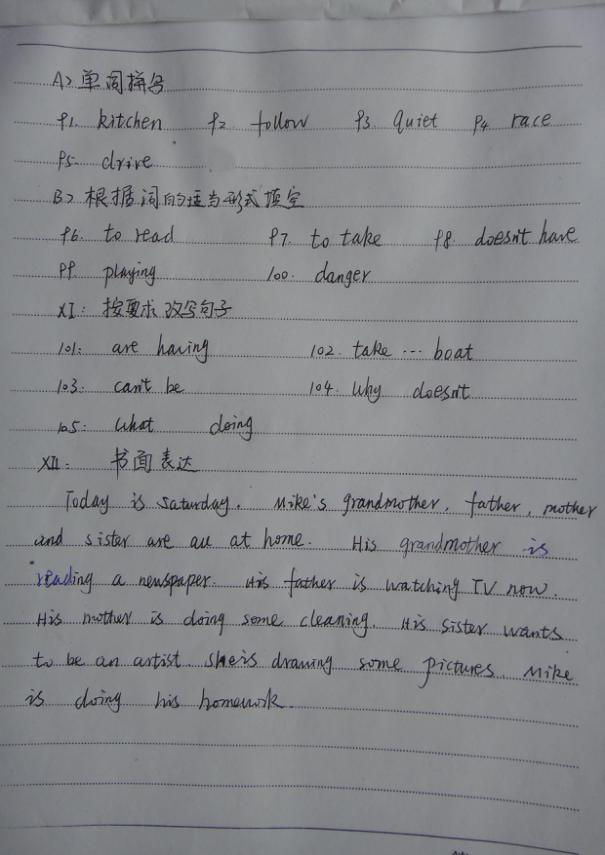 A> 单词拼写
91. kitchen 92. follow 93. quiet 94. race
95. drive
B> 根据词的适当形式填空
96. to read 97. to take 98. doesn't have
99. playing 100. danger
XI: 按要求改写句子
101: are having 102. take … boat
103: can't be 104. Why doesn't
105: What doing
XII: 书面表达
Today is Saturday. Mike's grandmother, father, mother
and sister are all at home. His grandmother is
reading a newspaper. His father is watching TV now.
His mother is doing some cleaning. His sister wants
to be an artist. She is drawing some pictures. Mike
is doing his homework.